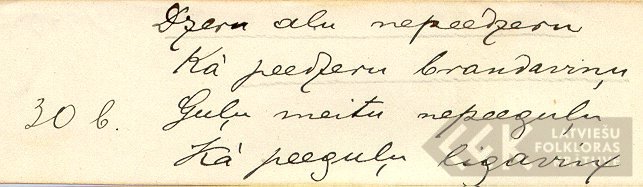 Dzeru alu nepeedzeru
Kà peedzeru brandaviņu
30 b. Guļu meitu nepeeguļu
Kà peeguļu ligaviņ
LATVIEŠU
FOLKLORAS